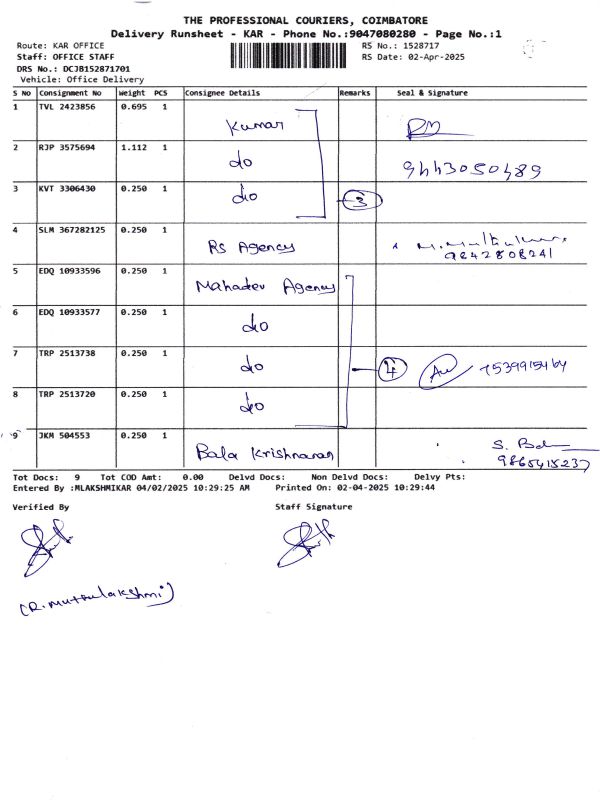 THE PROFESSIONAL COURIERS, COIMBATORE
Delivery Runsheet - KAR - Phone No.:9047080280 - Page No.:1
Route: KAR OFFICE RS No.: 1528717
Staff: OFFICE STAFF RS Date: 02-Apr-2025
DRS No.: DCJB152871701
Vehicle: Office Delivery
S No Consignment No Weight PCS Consignee Details Remarks Seal & Signature
1 TVL 2423856 0.695 1 Kumar
2 RJP 3575694 1.112 1 do 9443050489
3 KVT 3306430 0.250 1 do 3
4 SLM 367282125 0.250 1 RS Agency
9842808241
5 EDQ 10933596 0.250 1 Mahadev Agency
6 EDQ 10933577 0.250 1 do
7 TRP 2513738 0.250 1 do 4 7539915464
8 TRP 2513720 0.250 1 do
9 JKM 504553 0.250 1 Bala Krishnanan S.
9865415237
Tot Docs: 9 Tot COD Amt: 0.00 Delvd Docs: Non Delvd Docs: Delvy Pts:
Entered By :MLAKSHMIKAR 04/02/2025 10:29:25 AM Printed On: 02-04-2025 10:29:44
Verified By Staff Signature
(R. Muthulakshmi)